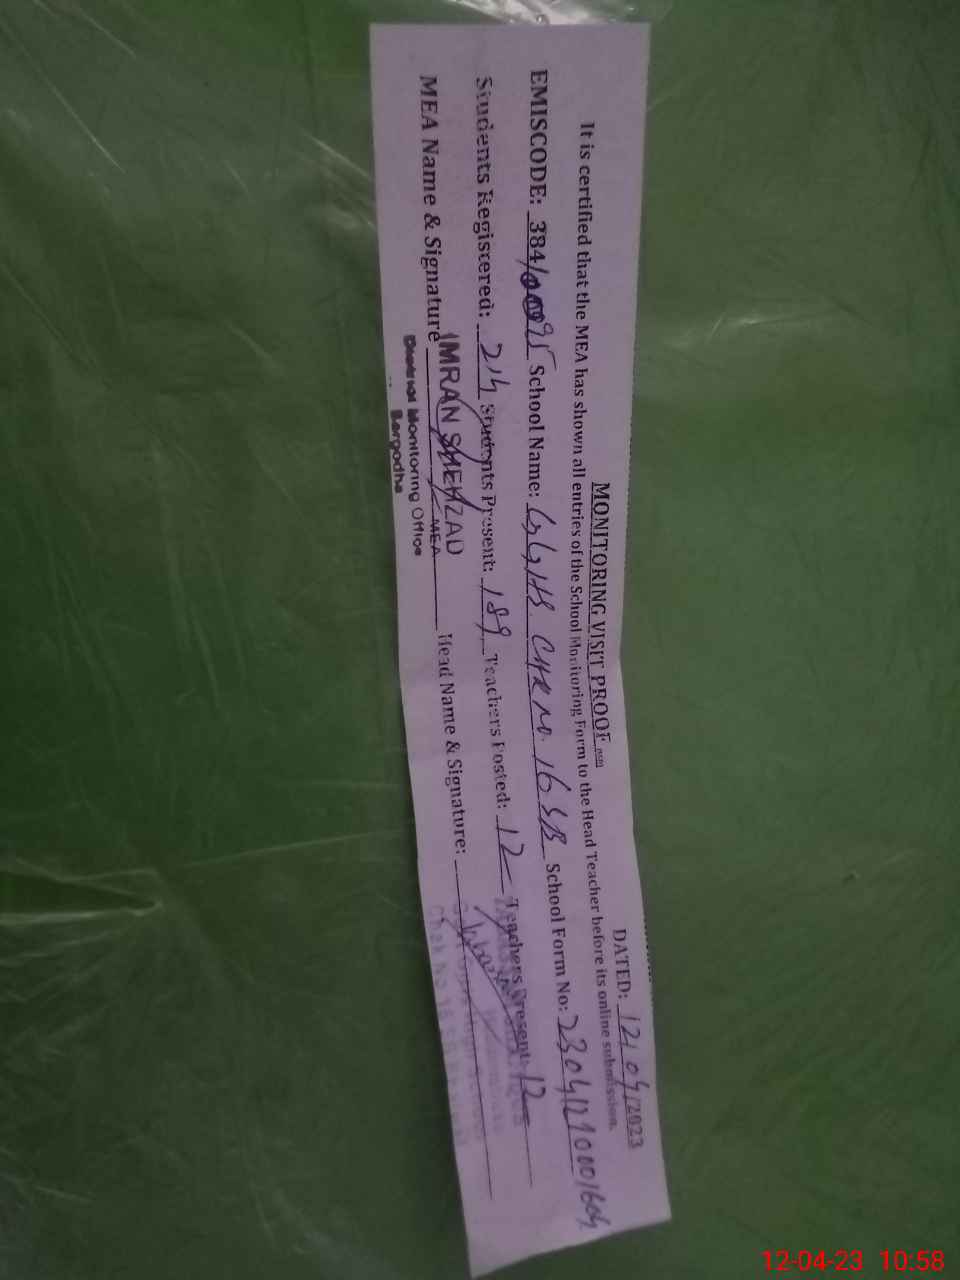 MONITORING VISIT PROOF
DATED: 12/04/2023
It is certified that the MEA has shown all entries of the School Monitoring Form to the Head Teacher before its online submission.
EMISCODE: 384/ School Name: GGHS. CHK NO. 16 SB School Form No:
Students Registered: 214 Students Present: 189 Teachers Posted: 12 Teachers Present: 12
MEA Name & Signature IMRAN SHEHZAD Head Name & Signature:
MEA
District Monitoring Office
Sargodha
12-04-23 10:58